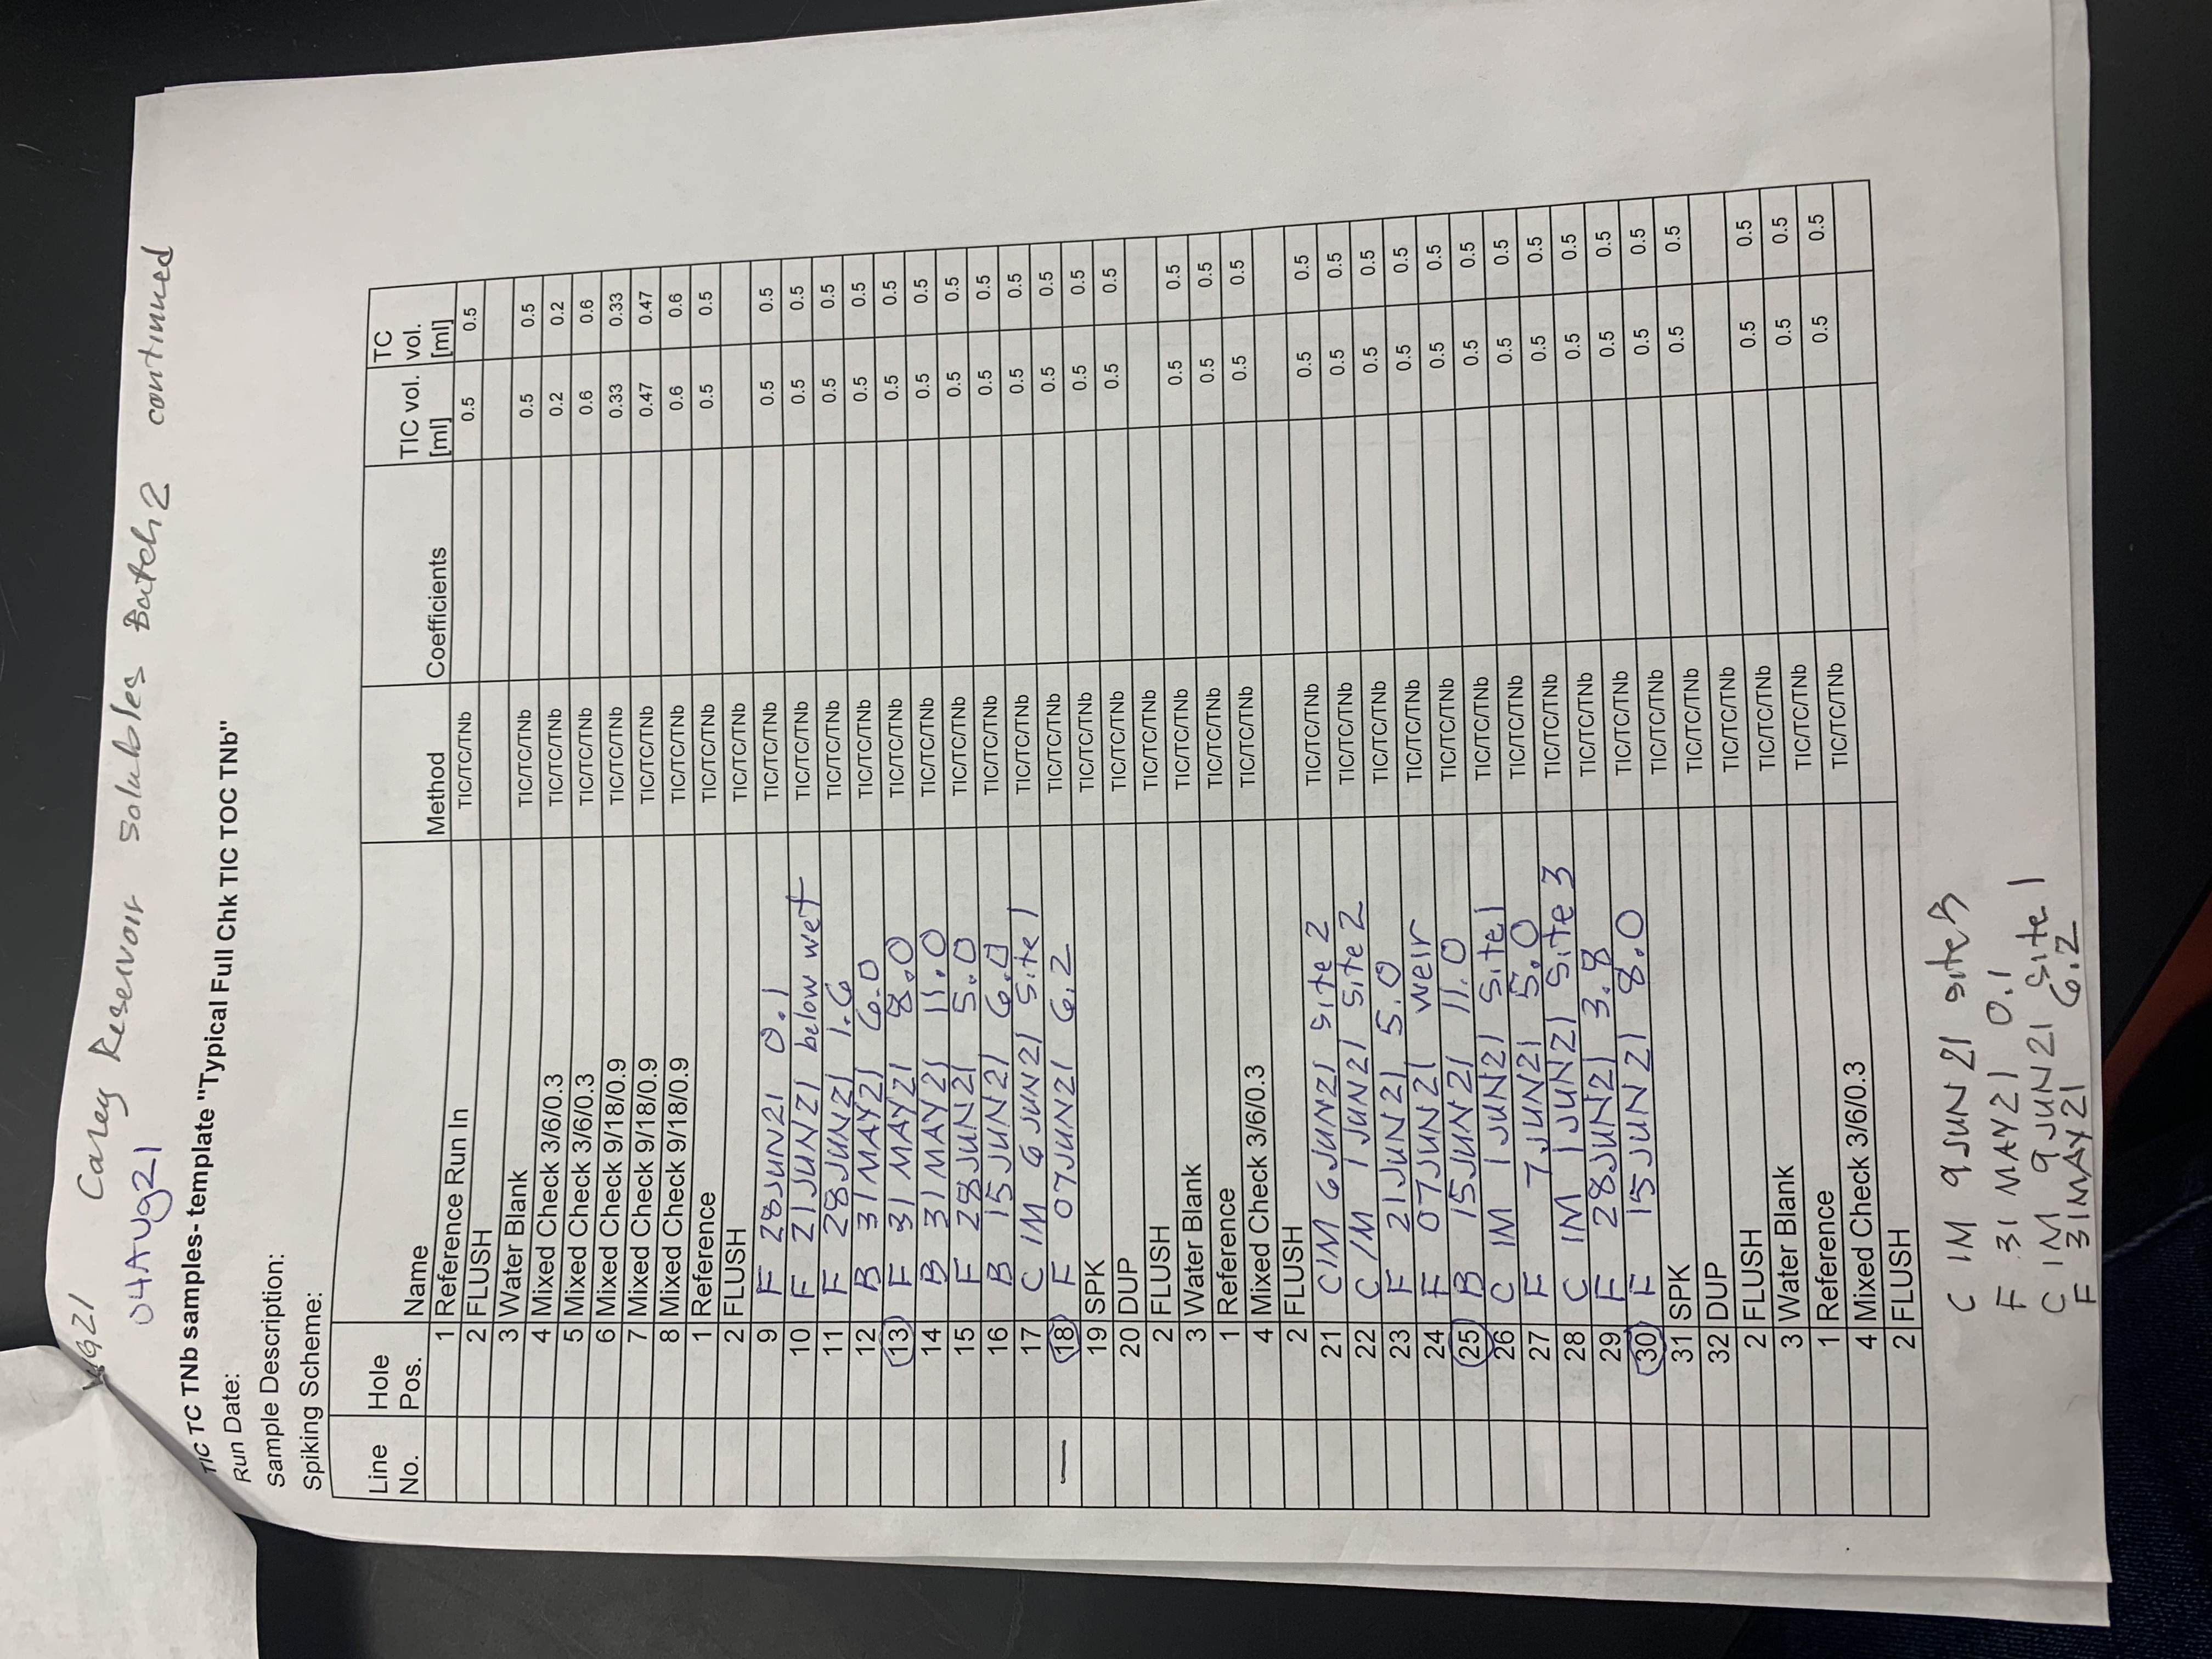 UG21 Carey Reservoir Solubles Batch 2 continued
04AUg21
TIC TC TNb samples- template "Typical Full Chk TIC TOC TNb"
Run Date:
Sample Description:
Spiking Scheme:
Line No. Hole Pos. Name Method Coefficients TIC vol. [ml] TC vol. [ml]
1 Reference Run In TIC/TC/TNb 0.5 0.5
2 FLUSH
3 Water Blank TIC/TC/TNb 0.5 0.5
4 Mixed Check 3/6/0.3 TIC/TC/TNb 0.2 0.2
5 Mixed Check 3/6/0.3 TIC/TC/TNb 0.6 0.6
6 Mixed Check 9/18/0.9 TIC/TC/TNb 0.33 0.33
7 Mixed Check 9/18/0.9 TIC/TC/TNb 0.47 0.47
8 Mixed Check 9/18/0.9 TIC/TC/TNb 0.6 0.6
1 Reference TIC/TC/TNb 0.5 0.5
2 FLUSH TIC/TC/TNb
9 F 28JUN21 0.1 TIC/TC/TNb 0.5 0.5
10 F 21JUN21 below wet TIC/TC/TNb 0.5 0.5
11 F 28JUN21 1.6 TIC/TC/TNb 0.5 0.5
12 B 31MAY21 6.0 TIC/TC/TNb 0.5 0.5
13 F 31 MAY21 8.0 TIC/TC/TNb 0.5 0.5
14 B 31MAY21 11.0 TIC/TC/TNb 0.5 0.5
15 F 28JUN21 5.0 TIC/TC/TNb 0.5 0.5
16 B 15JUN21 6.0 TIC/TC/TNb 0.5 0.5
17 C IM 6JUN21 Site 1 TIC/TC/TNb 0.5 0.5
— 18 F 07JUN21 6.2 TIC/TC/TNb 0.5 0.5
19 SPK TIC/TC/TNb 0.5 0.5
20 DUP TIC/TC/TNb 0.5 0.5
2 FLUSH TIC/TC/TNb
3 Water Blank TIC/TC/TNb 0.5 0.5
1 Reference TIC/TC/TNb 0.5 0.5
4 Mixed Check 3/6/0.3 TIC/TC/TNb 0.5 0.5
2 FLUSH
21 CIM 6JUN21 Site 2 TIC/TC/TNb 0.5 0.5
22 C IM 1JUN21 Site 2 TIC/TC/TNb 0.5 0.5
23 F 21JUN21 5.0 TIC/TC/TNb 0.5 0.5
24 F 07JUN21 weir TIC/TC/TNb 0.5 0.5
25 B 15JUN21 11.0 TIC/TC/TNb 0.5 0.5
26 C IM 1JUN21 Site 1 TIC/TC/TNb 0.5 0.5
27 F 7JUN21 5.0 TIC/TC/TNb 0.5 0.5
28 C IM 1JUN21 Site 3 TIC/TC/TNb 0.5 0.5
29 F 28JUN21 3.8 TIC/TC/TNb 0.5 0.5
30 F 15JUN21 8.0 TIC/TC/TNb 0.5 0.5
31 SPK TIC/TC/TNb 0.5 0.5
32 DUP TIC/TC/TNb 0.5 0.5
2 FLUSH TIC/TC/TNb
3 Water Blank TIC/TC/TNb 0.5 0.5
1 Reference TIC/TC/TNb 0.5 0.5
4 Mixed Check 3/6/0.3 TIC/TC/TNb 0.5 0.5
2 FLUSH
C IM 9JUN21 site 3
F 31MAY21 0.1
C IM 9JUN21 Site 1
F 31MAY21 6.2